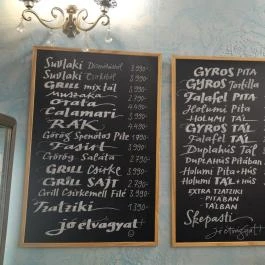 Suvlaki Disznóhúsból 3.990-
Suvlaki Csirkéből 3.990-
GRILL mix tál 3.990-
muszaka 2.790-
Orata 4.490-
Calamari 3.990-
RÁK 4.490-
Görög Spenótos Pite 3.990-
Fasirt 3.990-
Görög Saláta 2.790-
GRILL Csirke 3.990-
GRILL SAJT 2.790-
Grill Csirkemell Filé 3.990-
Tzatziki 1.490-
jó étvágyat!
GYROS PITA
GYROS Tortilla
Falafel Pita
Holumi Pita
HOLUMI TÁL
GYROS TÁL
Falafel TÁL
Duplahús Tál
DUPLAHÚS Pitában
Holumi Pita+HÚS
Holumi TÁL+HÚS
EXTRA TZATZIKI
- PITÁBAN
- TÁLBAN
Skepasti
Jó étvágyat!